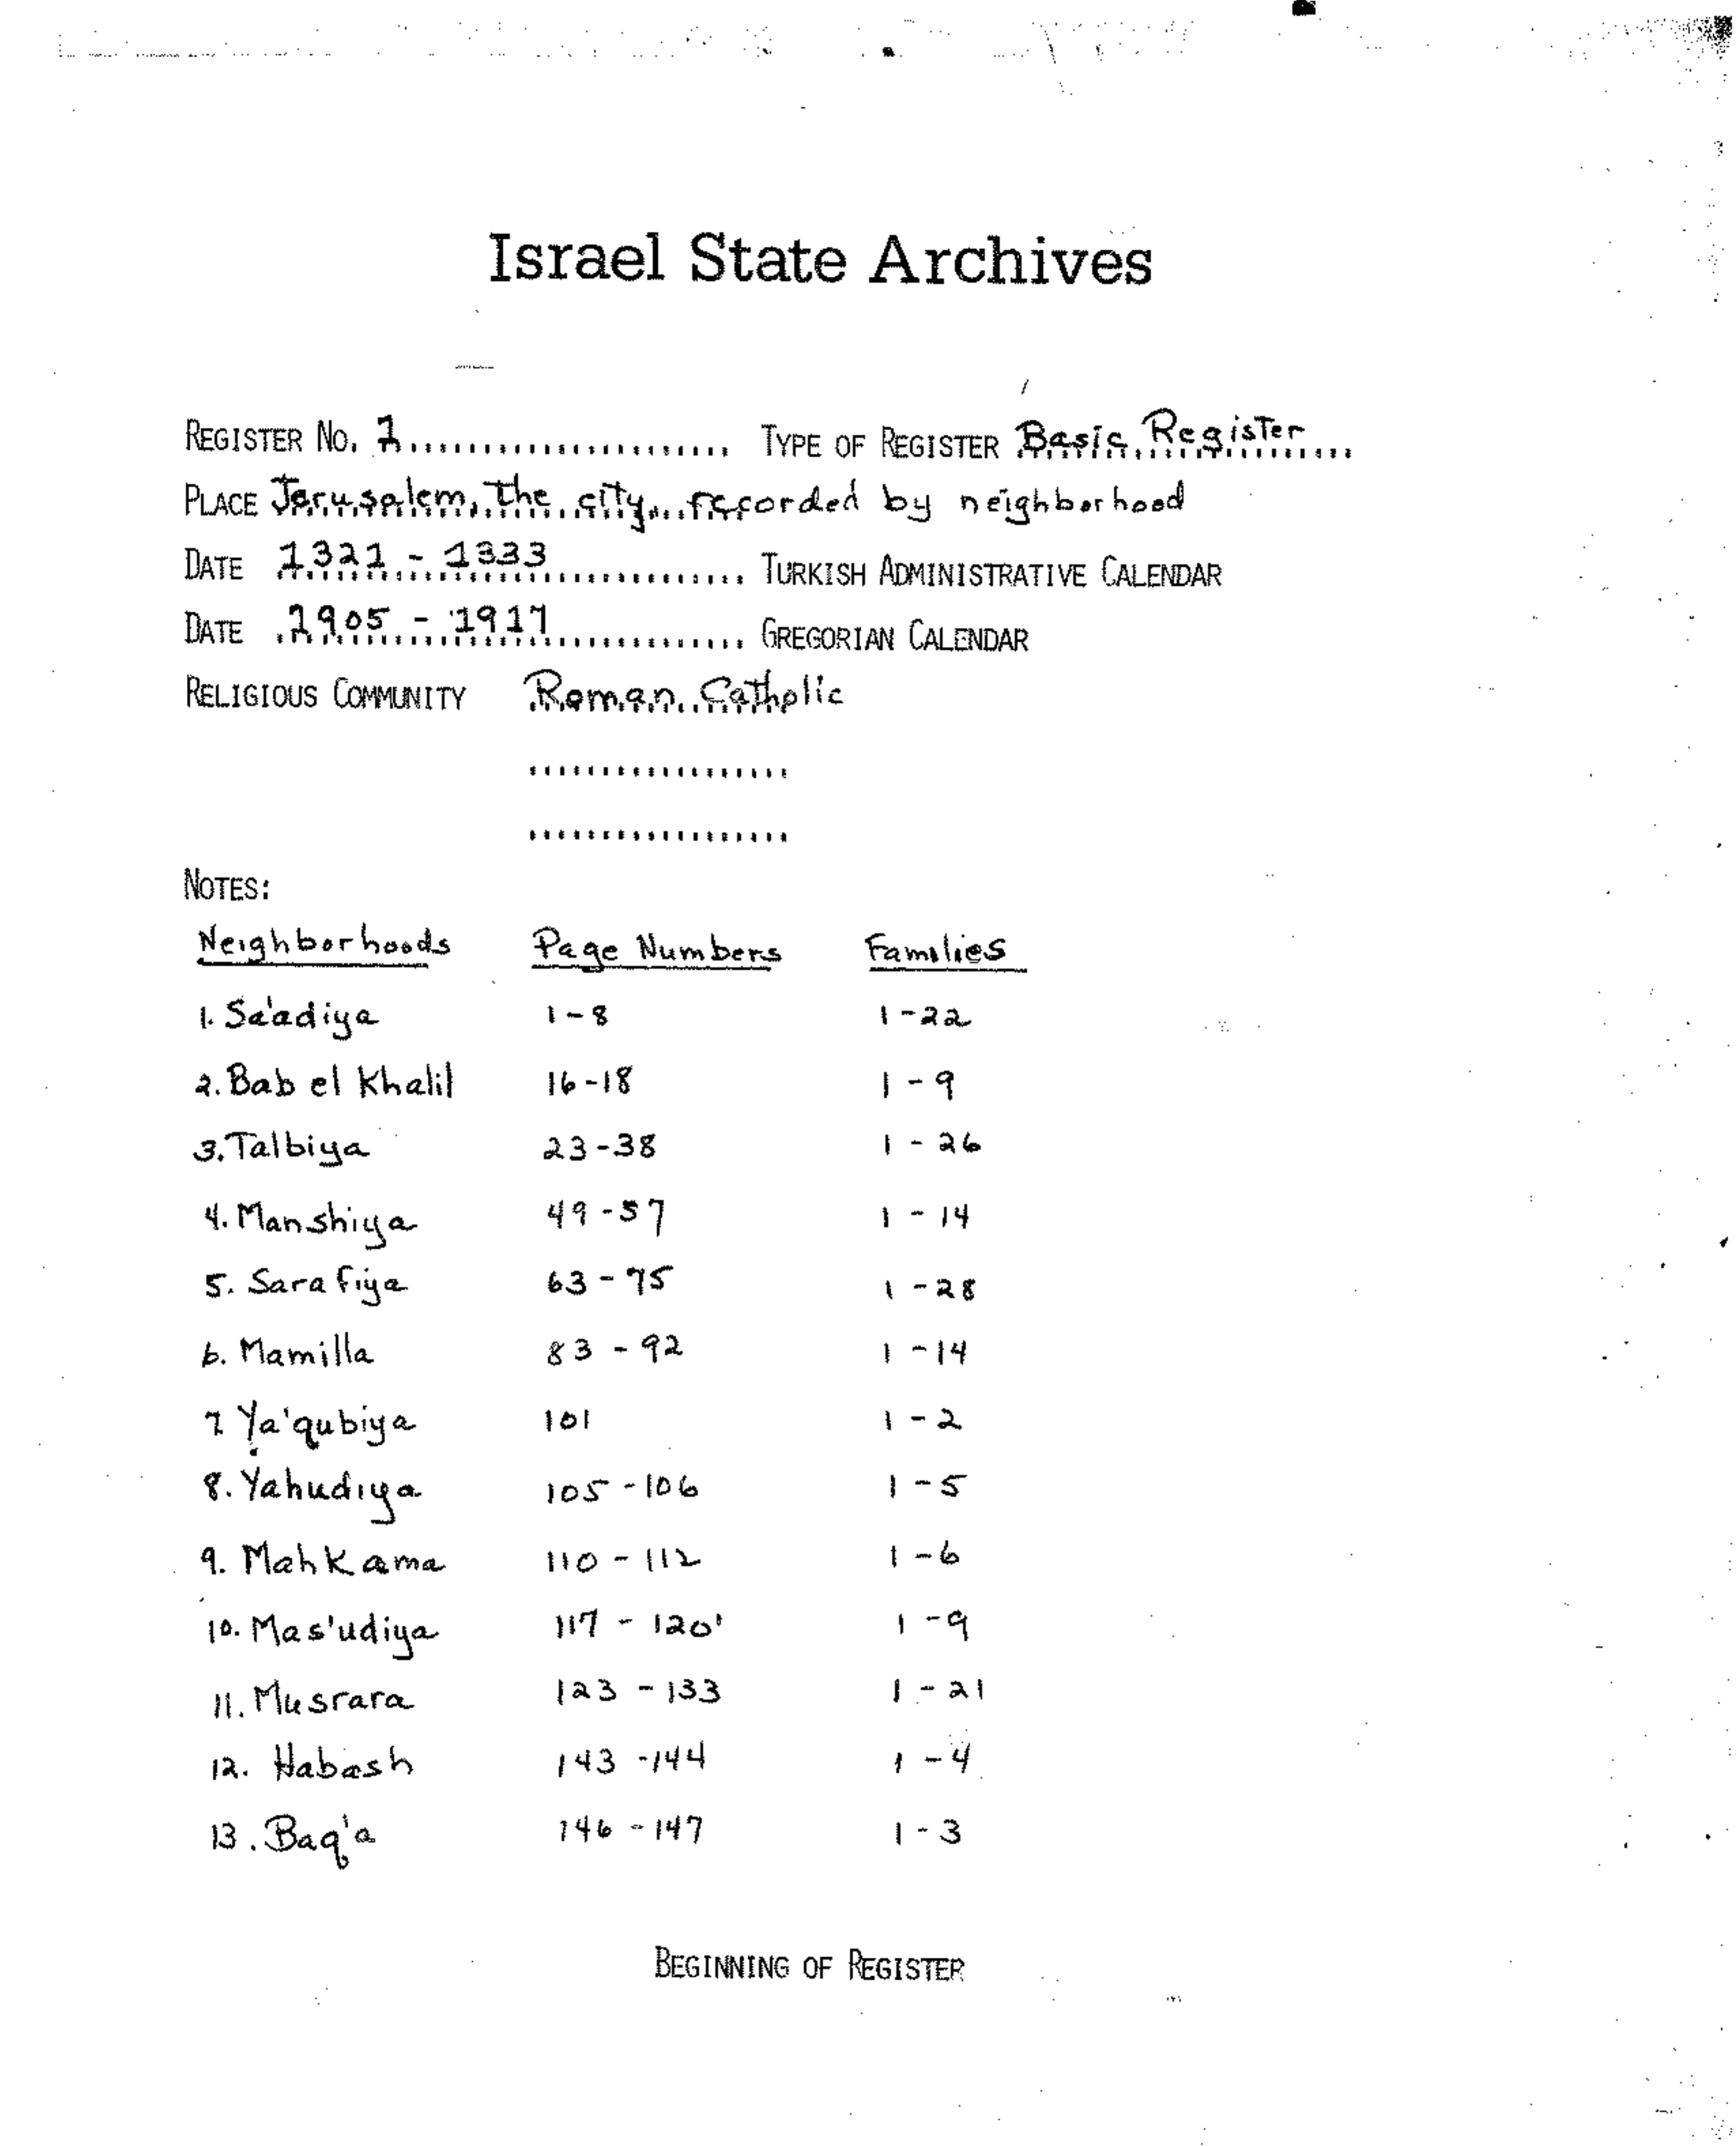 Israel State Archives
REGISTER NO. 1 TYPE OF REGISTER Basic Register
PLACE Jerusalem, the city, recorded by neighborhood
DATE 1321 - 1333 TURKISH ADMINISTRATIVE CALENDAR
DATE 1905 - 1917 GREGORIAN CALENDAR
RELIGIOUS COMMUNITY Roman Catholic
NOTES:
Neighborhoods Page Numbers Families
1. Sa'adiya 1-8 1-22
2. Bab el Khalil 16-18 1-9
3. Talbiya 23-38 1-26
4. Manshiya 49-57 1-14
5. Sarafiya 63-75 1-28
6. Mamilla 83-92 1-14
7. Ya'qubiya 101 1-2
8. Yahudiya 105-106 1-5
9. Mahkama 110-112 1-6
10. Mas'udiya 117-120 1-9
11. Musrara 123-133 1-21
12. Habash 143-144 1-4
13. Baq'a 146-147 1-3
BEGINNING OF REGISTER